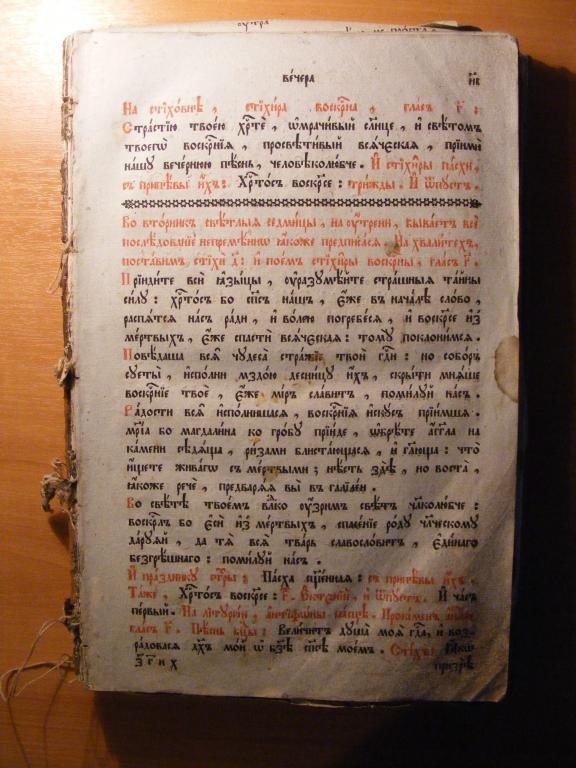 ве́чера
На стїхо́внѣ, стїхи́ра воскр҃на, гла́съ г҃:
Стра́стїю твое́ю хр҃те́, ѡ҆мрачи́вый сл҃нце, и҆ свѣ́томъ
твоегѡ̀ воскр҃нїѧ, просвѣти́вый всѧ́ческаѧ, прїимѝ
на́шу вече́рнюю пѣ́снь, человѣколю́бче. И҆ стїхи̑ры па́схи,
съ припѣ́вы и҆́хъ: Хр҇то́съ воскр҃се: три́жды. И҆ ѿпу́стъ.
Во вто́рникъ свѣ́тлыѧ седми́цы, на ᲂу҆́трени, быва́етъ всѐ
послѣ́дованїе непремѣ́ннѡ ꙗ҆́коже предписа́сѧ. На хвали́техъ,
поста́вимъ стїхѝ д҃: и҆ пое́мъ стїхи̑ры воскр҃ны, гла́съ г҃.
Прїиди́те всѝ ꙗ҆зы́цы, ᲂу҆разумѣ́йте стра́шныѧ та́йны
си́лу: хр҇то́съ бо сп҃съ на́шъ, є҆́же въ нача́лѣ сло́во,
распѧ́тсѧ на́съ ра́ди, и҆ во́лею погребе́сѧ, и҆ воскр҃се и҆з̾
ме́ртвыхъ, є҆́же спастѝ всѧ́ческаѧ: тому̀ поклони́мсѧ.
Повѣ́даша всѧ̑ чудеса̀ стра́жїе твоѝ гд҇и: но собо́ръ
суеты̀, и҆спо́лни мздо́ю десни́цу и҆́хъ, скры́ти мнѧ́ще
воскр҃нїе твоѐ, є҆́же мі́ръ сла́витъ, поми́луй на́съ.
Ра́дости всѧ̑ и҆спо́лнишасѧ, воскр҃нїѧ и҆́скусъ прїи́мшаѧ.
мр҃і́а бо магдали́на ко гро́бу прїи́де, ѡ҆брѣ́те а҆́гг҃ла на
ка́мени сѣдѧ́ща, ри́зами блиста́ющасѧ, и҆ гл҃юща: что̀
и҆́щете жива́гѡ съ ме́ртвыми; нѣ́сть здѣ̀, но воста̀,
ꙗ҆́коже речѐ, предварѧ́ѧ вы̀ въ галїле́и.
Во свѣ́тѣ твое́мъ влⷣко ᲂу҆́зримъ свѣ́тъ чл҃колю́бче:
воскр҃лъ бо є҆сѝ и҆з̾ ме́ртвыхъ, спасе́нїе ро́ду чл҃ческому
да́руѧй, да тѧ̀ всѧ̀ тва́рь славосло́витъ, є҆ди́наго
безгрѣ́шнаго: поми́луй на́съ.
И҆ пра́зднику стⷯры: Па́сха сщ҃е́ннаѧ: съ припѣ́вы и҆́хъ.
Та́же, Хр҇то́съ воскр҃се: г҃. Е҆ктенїѝ, и҆ ѿпу́стъ. И҆ ча́съ
пе́рвый. На лїтургі́и, а҆нтїфѡ́ны па́сцѣ. Проки́менъ,
гла́съ г҃. Пѣ́снь бц҃ы: Вели́читъ душа̀ моѧ̀ гд҇а, и҆ воз-
ра́довасѧ дх҃ъ мо́й ѡ҆ бз҃ѣ сп҃сѣ мое́мъ. Сті́хъ: Ꙗ҆́кѡ
призрѣ̀